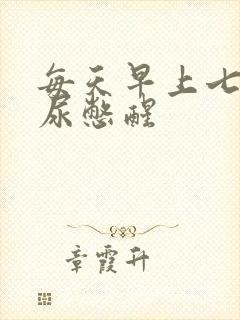 每天早上七
尿憋醒
章霞升